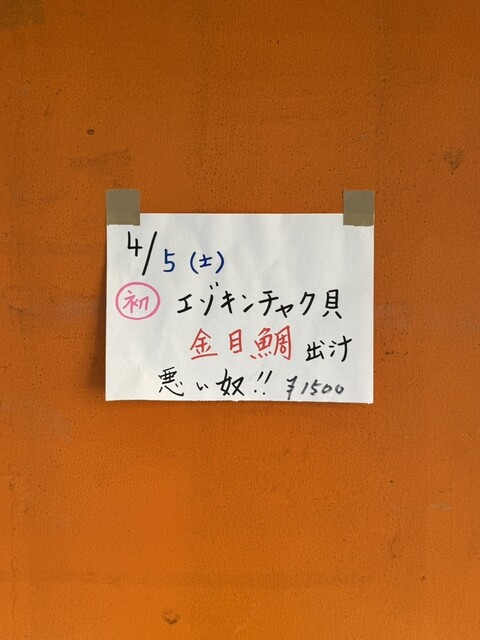 4/5(土)
初 エゾキンチャク貝
金目鯛 出汁
悪い奴!! ¥1500